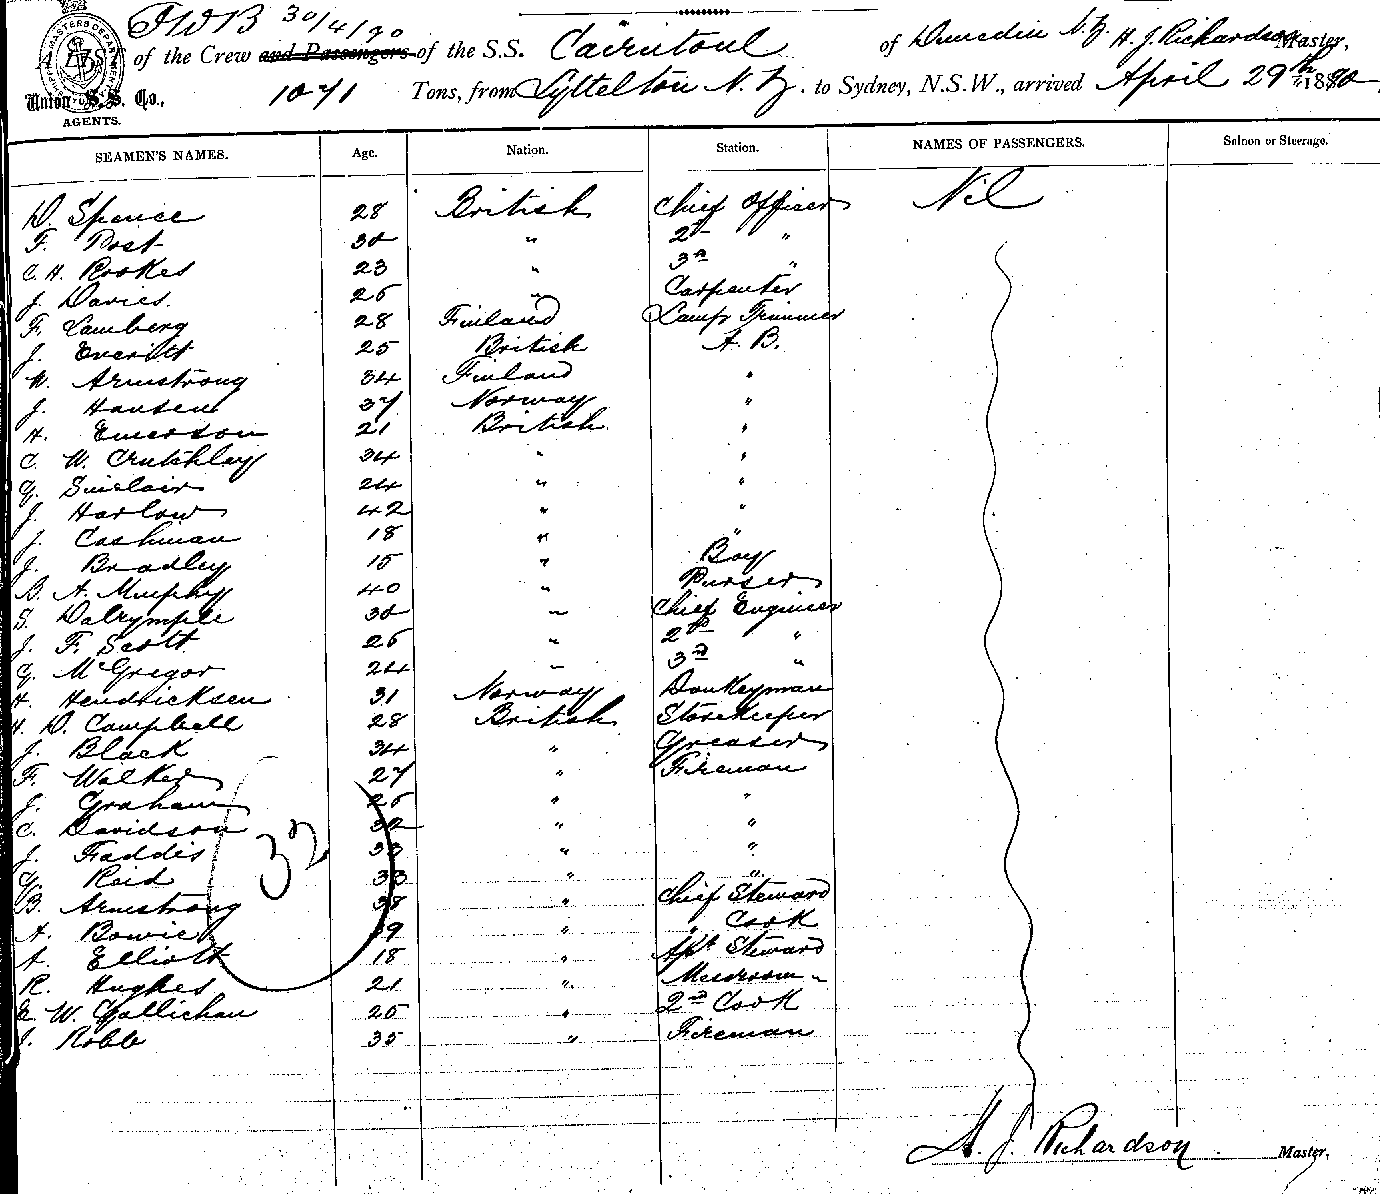 FWB 30/4/90
A LIST of the Crew and Passengers of the S.S. Cairntoul of Dunedin N.Z. H. J. Richardson Master,
Union S.S. Co., 1071 Tons, from Lyttelton N.Z. to Sydney, N.S.W., arrived April 29th 1890
AGENTS.
SEAMEN'S NAMES. Age. Nation. Station. NAMES OF PASSENGERS. Saloon or Steerage.
D. Spence 28 British Chief Officer Nil
F. Post 30 " 2nd "
C. H. Rookes 23 " 3rd "
J. Davies 26 " Carpenter
F. Lamberg 28 Finland Lamp Trimmer
J. Everitt 25 British A. B.
W. Armstrong 34 Finland "
J. Hansen 37 Norway "
H. Emerson 21 British "
C. W. Crutchley 34 " "
G. Sinclair 24 " "
J. Harlow 42 " "
J. Cashman 18 " "
J. Bradley 15 " Boy
D. A. Murphy 40 " Purser
G. Dalrymple 30 " Chief Engineer
J. F. Scott 26 " 2nd "
G. McGregor 24 " 3rd "
H. Hendricksen 31 Norway Donkeyman
H. D. Campbell 28 British Storekeeper
J. Black 34 " Greaser
F. Walker 27 " Fireman
J. Graham 26 " "
C. Davidson 32 " "
J. Faddis 33 " "
G. Reid 33 " "
B. Armstrong 38 " Chief Steward
A. Bowie 39 " " Cook
A. Elliott 18 " Asst Steward
R. Hughes 21 " Messroom "
E. W. Gallichan 25 " 2nd Cook
J. Robb 35 " Fireman
32
H. J. Richardson Master,